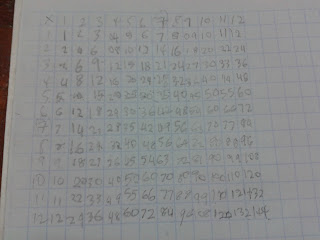 X 1 2 3 4 5 6 7 8 9 10 11 12
1 1 2 3 4 5 6 7 8 9 10 11 12
2 2 6 10 12 14 16 18 20 22 24
3 6 9 12 15 18 21 24 27 30 33 36
4 4 8 12 16 20 24 28 32 40 44 48
5 5 10 15 20 25 30 35 40 45 50 55 60
6 6 12 18 24 30 36 48 54 60 66 72
7 7 14 21 28 35 42 49 56 63 70 77 84
8 8 16 24 32 40 48 56 64 72 80 88 96
9 9 18 27 36 45 54 63 72 81 90 99 108
10 10 20 30 40 50 60 70 80 90 100 110 120
11 11 22 33 44 55 66 77 88 99 110 121 132
12 12 24 36 48 60 72 84 96 108 120 132 144